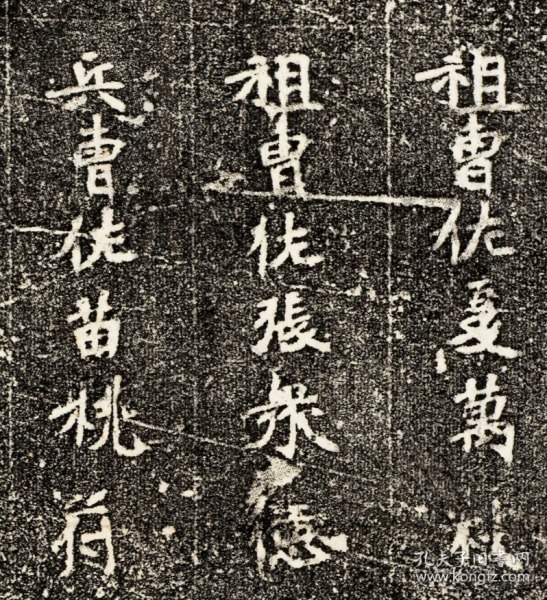 祖曹佐夏萬
祖曹佐張衆德
兵曹佐苗桃
孔夫子旧书网
www.kongfz.com